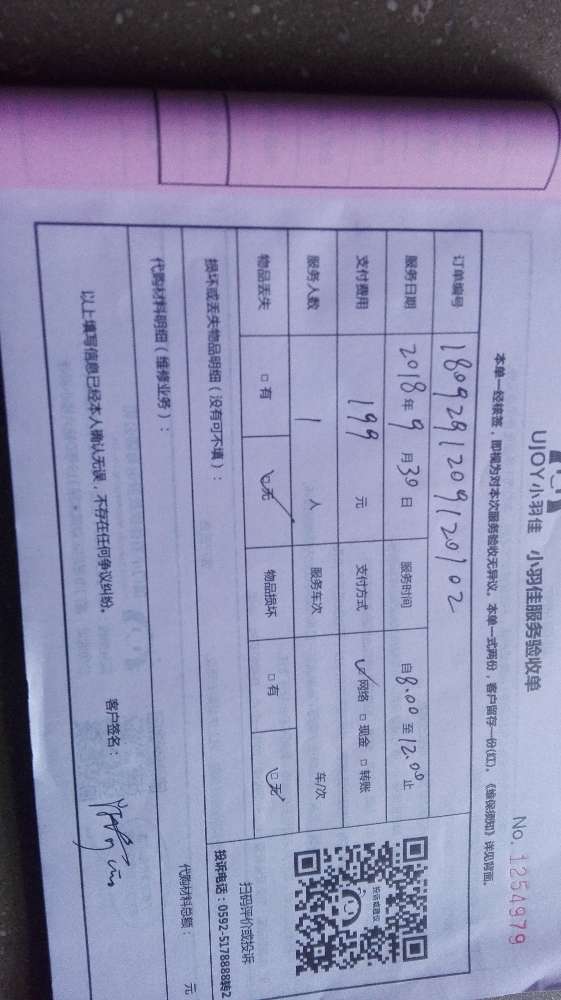 UJOY小羽佳 小羽佳服务验收单
No. 1254979
本单一经核签，即视为对本次服务验收无异议。本单一式两份，客户留存一份(红)。《维保须知》详见背面。
订单编号 1809291209120102
服务日期 2018年9月30日 服务时间 自8.00至12.00止
支付费用 199元 支付方式 ✓网络 □现金 □转账
服务人数 1人 服务车次 车/次
物品丢失 □有 ☑无 物品损坏 □有 ☑无
投诉或建议
扫码评价或投诉
投诉电话：0592-5178888转2
损坏或丢失物品明细（没有可不填）：
代购材料明细（维修业务）：
代购材料总额： 元
以上填写信息已经本人确认无误，不存在任何争议纠纷。
客户签名：